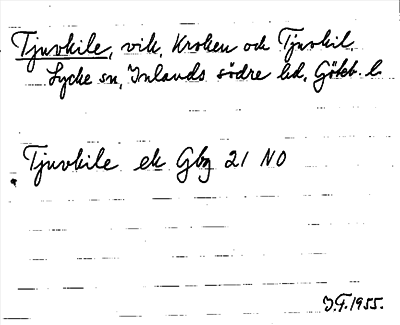 Tjuvkile, vik, Kroken och Tjuvkil.
Lycke sn, Inlands södre hd, Götb. l.
Tjuvkile ek Gbg 21 NO
J.F. 1955.